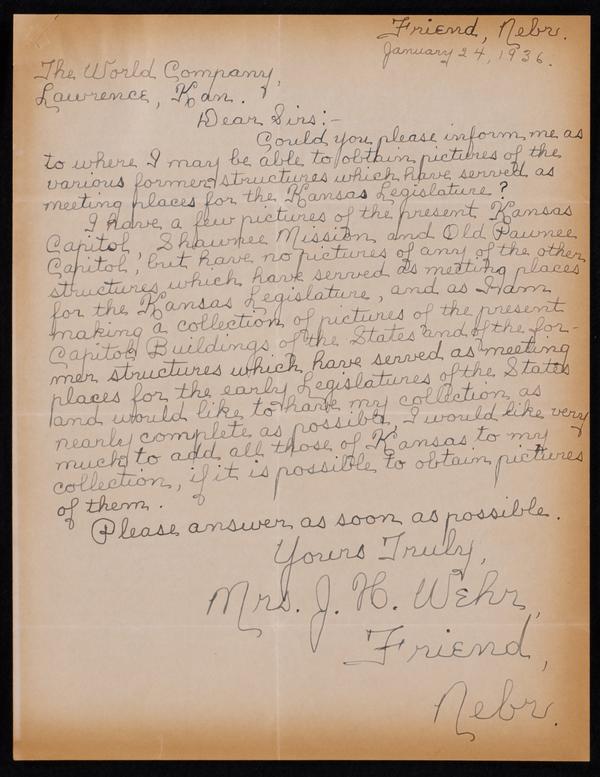 Friend, Nebr.
January 24, 1936.
The World Company,
Lawrence, Kan.
Dear Sirs:-
Could you please inform me as
to where I may be able to obtain pictures of the
various former structures which have served as
meeting places for the Kansas Legislature?
I have a few pictures of the present Kansas
Capitol, Shawnee Mission and Old Pawnee
Capitol, but have no pictures of any of the other
structures which have served as meeting places
for the Kansas Legislature, and as I am
making a collection of pictures of the present
Capitol Buildings of the States and of the for-
mer structures which have served as meeting
places for the early Legislatures of the States
and would like to have my collection as
nearly complete as possible, I would like very
much to add all those of Kansas to my
collection, if it is possible to obtain pictures
of them.
Please answer as soon as possible.
Yours Truly,
Mrs. J. H. Wehr,
Friend,
Nebr.